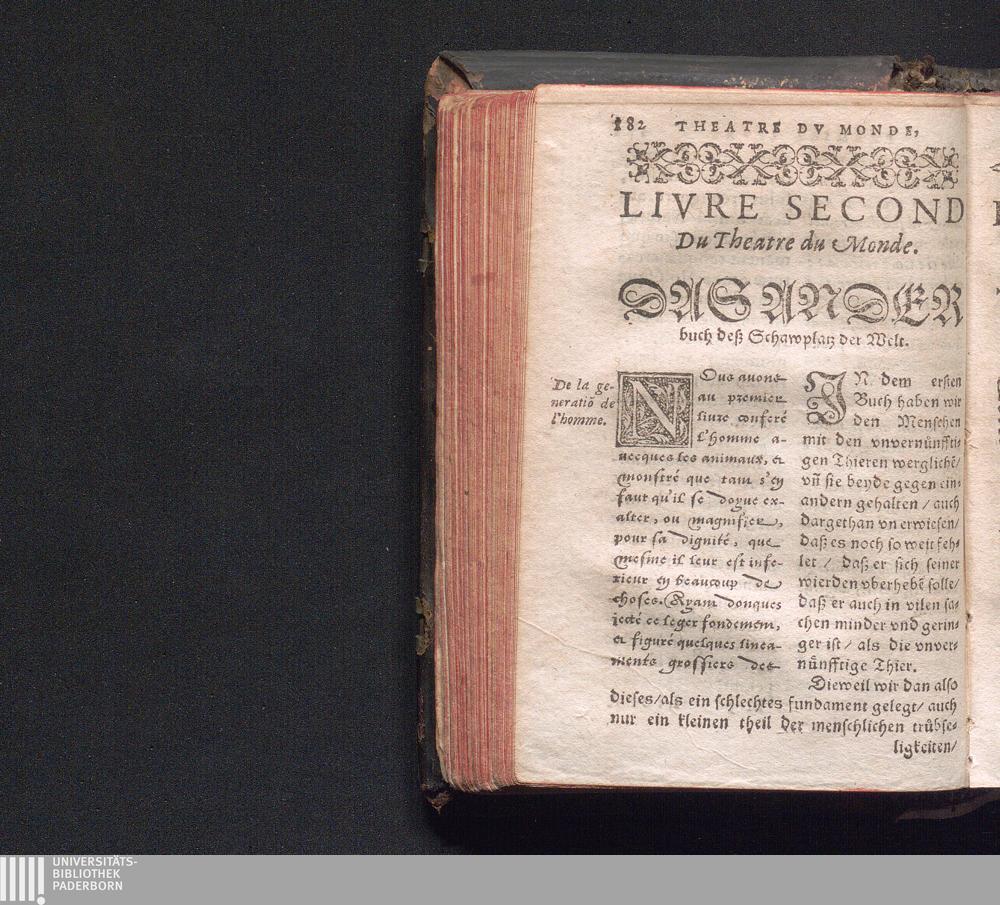 182 THEATRE DV MONDE,
LIVRE SECOND
Du Theatre du Monde.
DAS ANDER
buch deß Schawplatz der Welt.
De la ge-
neratiõ de
l'homme.
NOus auons
au premier
liure conferé
l'homme a-
uecques les animaux, et
monstré que tant s'en
faut qu'il se doyue ex-
alter, ou magnifier,
pour sa dignité, que
mesme il leur est infe-
rieur en beaucoup de
choses. Ayant donques
iecté ce leger fondement,
et figuré quelques linea-
ments grossiers des
IN dem ersten
Buch haben wir
den Menschen
mit den vnvernünffti-
gen Thieren verglichẽ/
vñ sie beyde gegen ein-
andern gehalten / auch
dargethan vn erwiesen/
daß es noch so weit feh-
let / daß er sich seiner
wierden vberhebẽ solle/
daß er auch in vilen sa-
chen minder vnd gerin-
ger ist / als die vnver-
nünfftige Thier.
Dieweil wir dan also
dieses/als ein schlechtes fundament gelegt/ auch
nur ein kleinen theil der menschlichen trübse-
ligkeiten/
UNIVERSITÄTS-
BIBLIOTHEK
PADERBORN